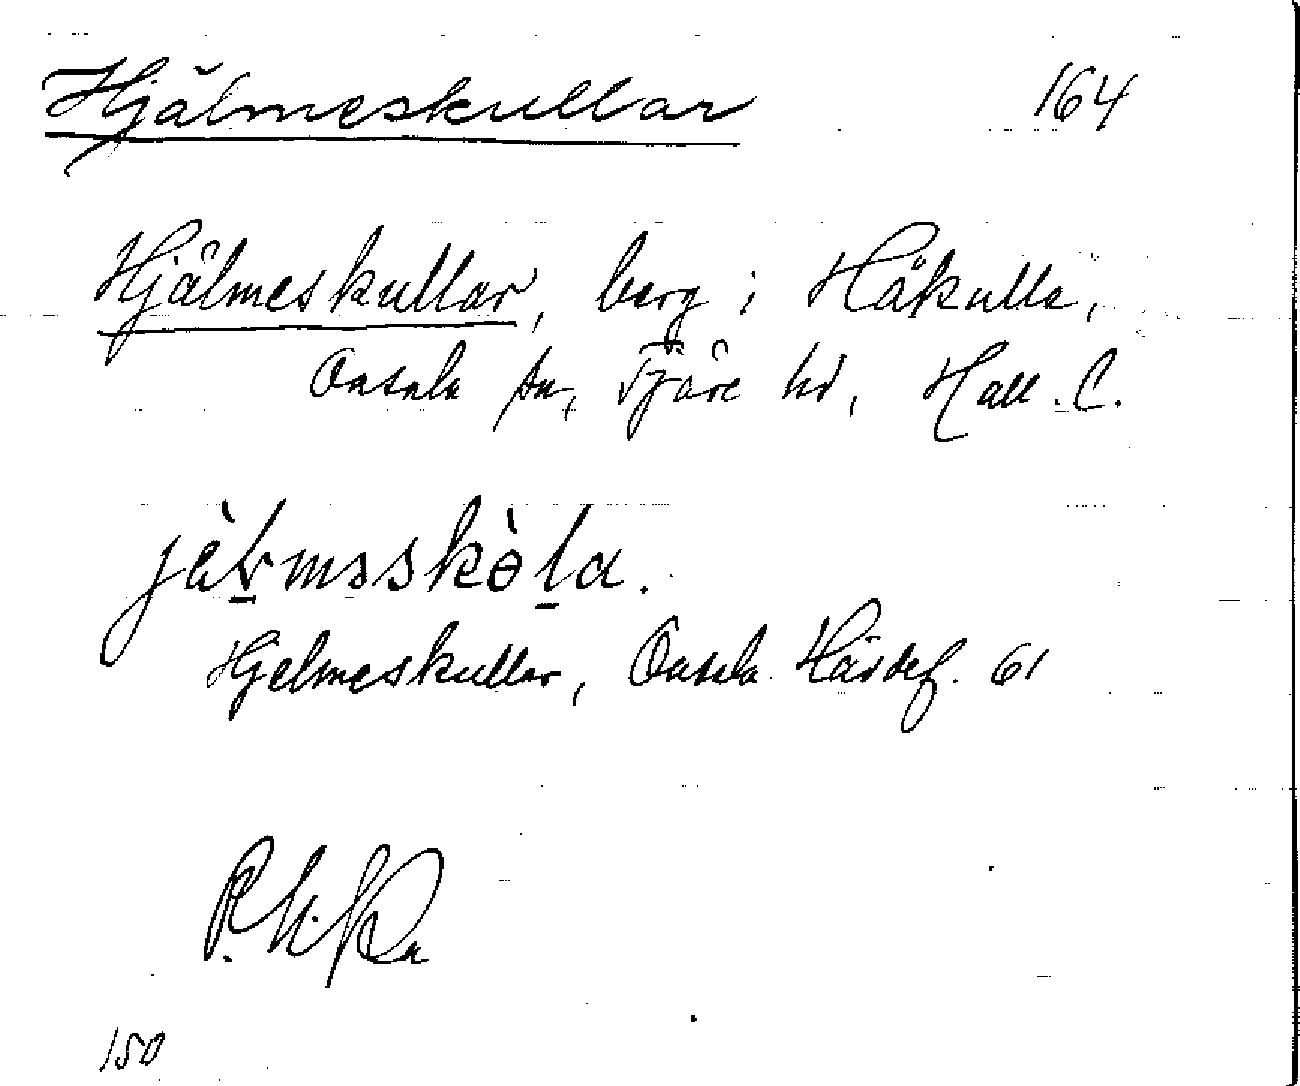 Hjälmeskullar 164
Hjälmeskullar, berg i Håkulla,
Onsala sn, Fjäre hd, Hall. l.
Hjelmeskullar, Onsala Härdef. 61
150